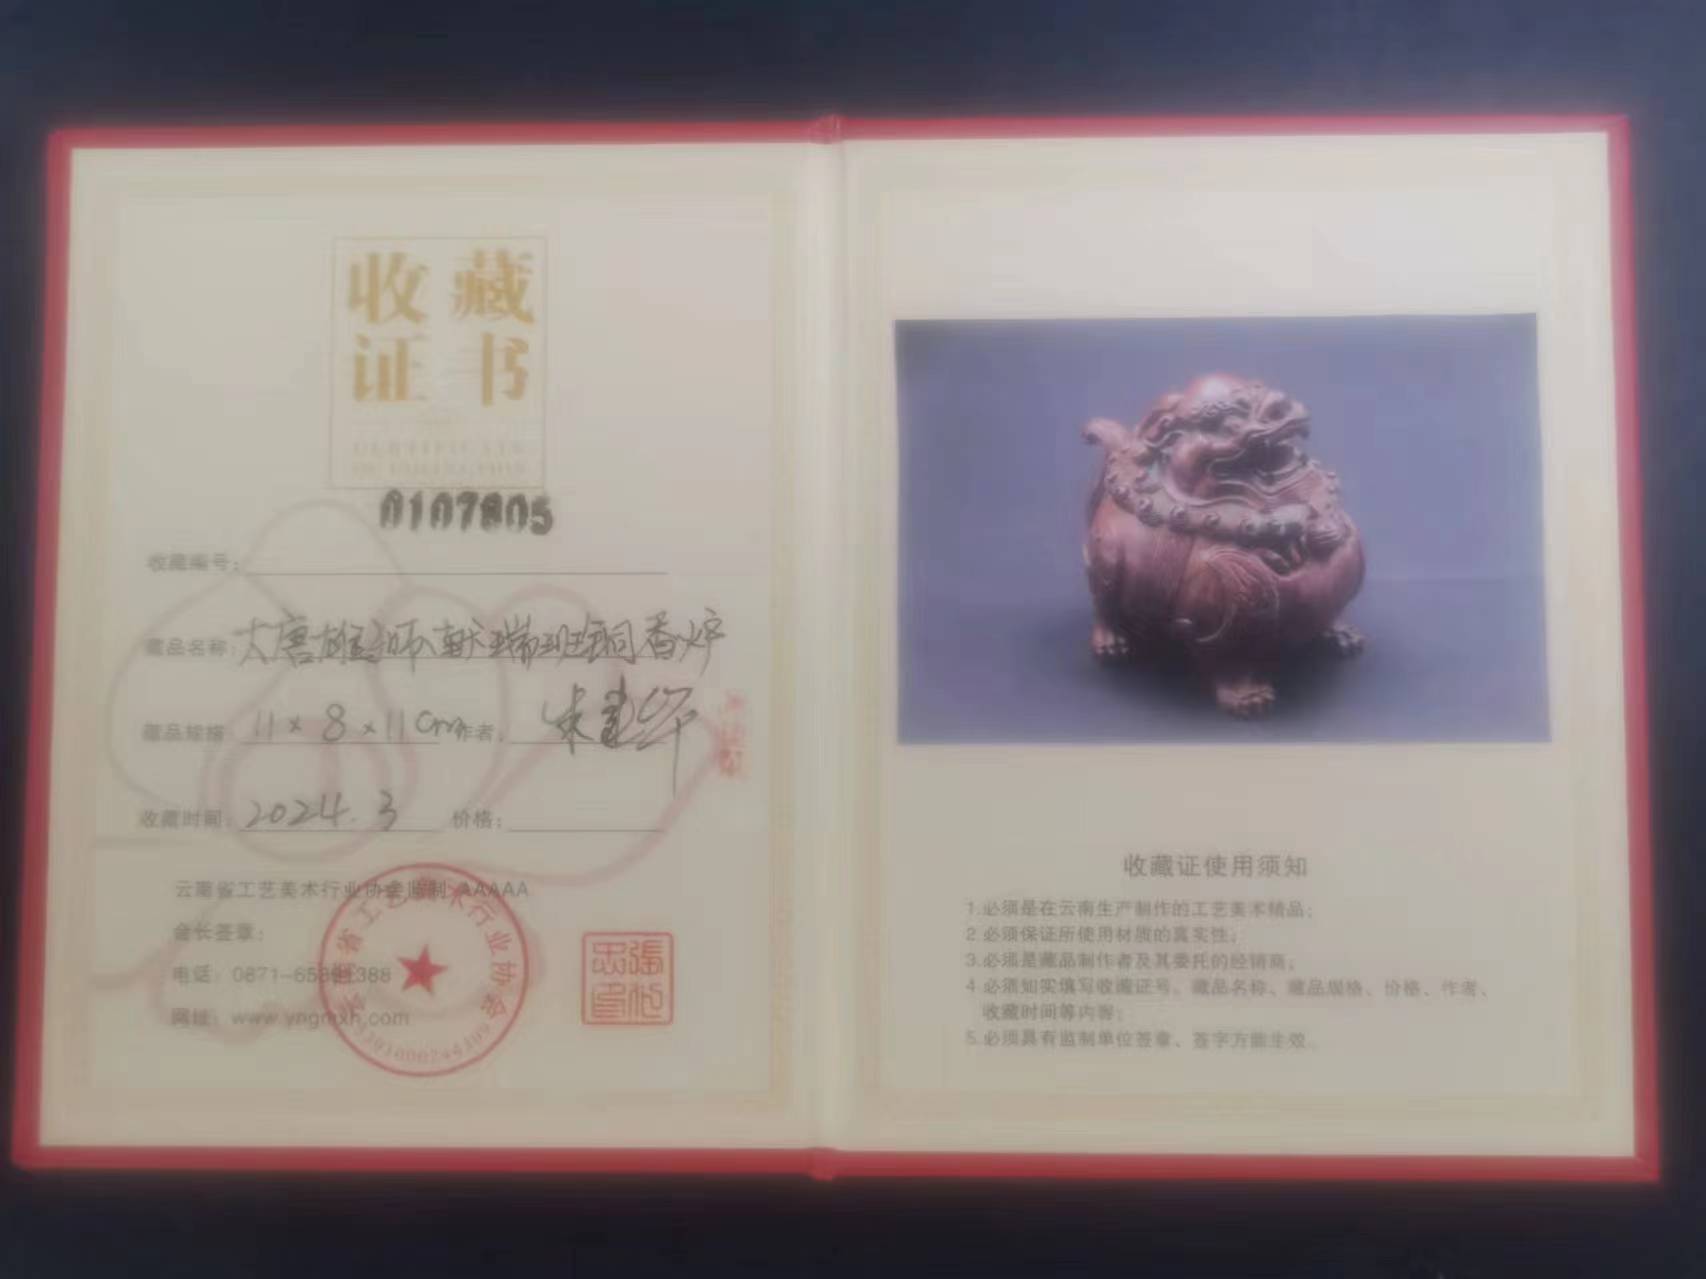 收藏
证书
CERTIFICATE
OF COLLECTION
0107805
收藏编号:
藏品名称: 大唐雄师献瑞斑铜香炉
藏品规格: 11×8×11cm 作者: 朱建华
收藏时间: 2024.3 价格:
云南省工艺美术行业协会监制 AAAAA
会长签章:
电话: 0871-65
388
网址: www.yngmxh.com
省工艺美术行业协会
收藏证使用须知
1.必须是在云南生产制作的工艺美术精品;
2.必须保证所使用材质的真实性;
3.必须是藏品制作者及其委托的经销商;
4.必须如实填写收藏证号、藏品名称、藏品规格、价格、作者、
收藏时间等内容;
5.必须具有监制单位签章、签字方能生效。